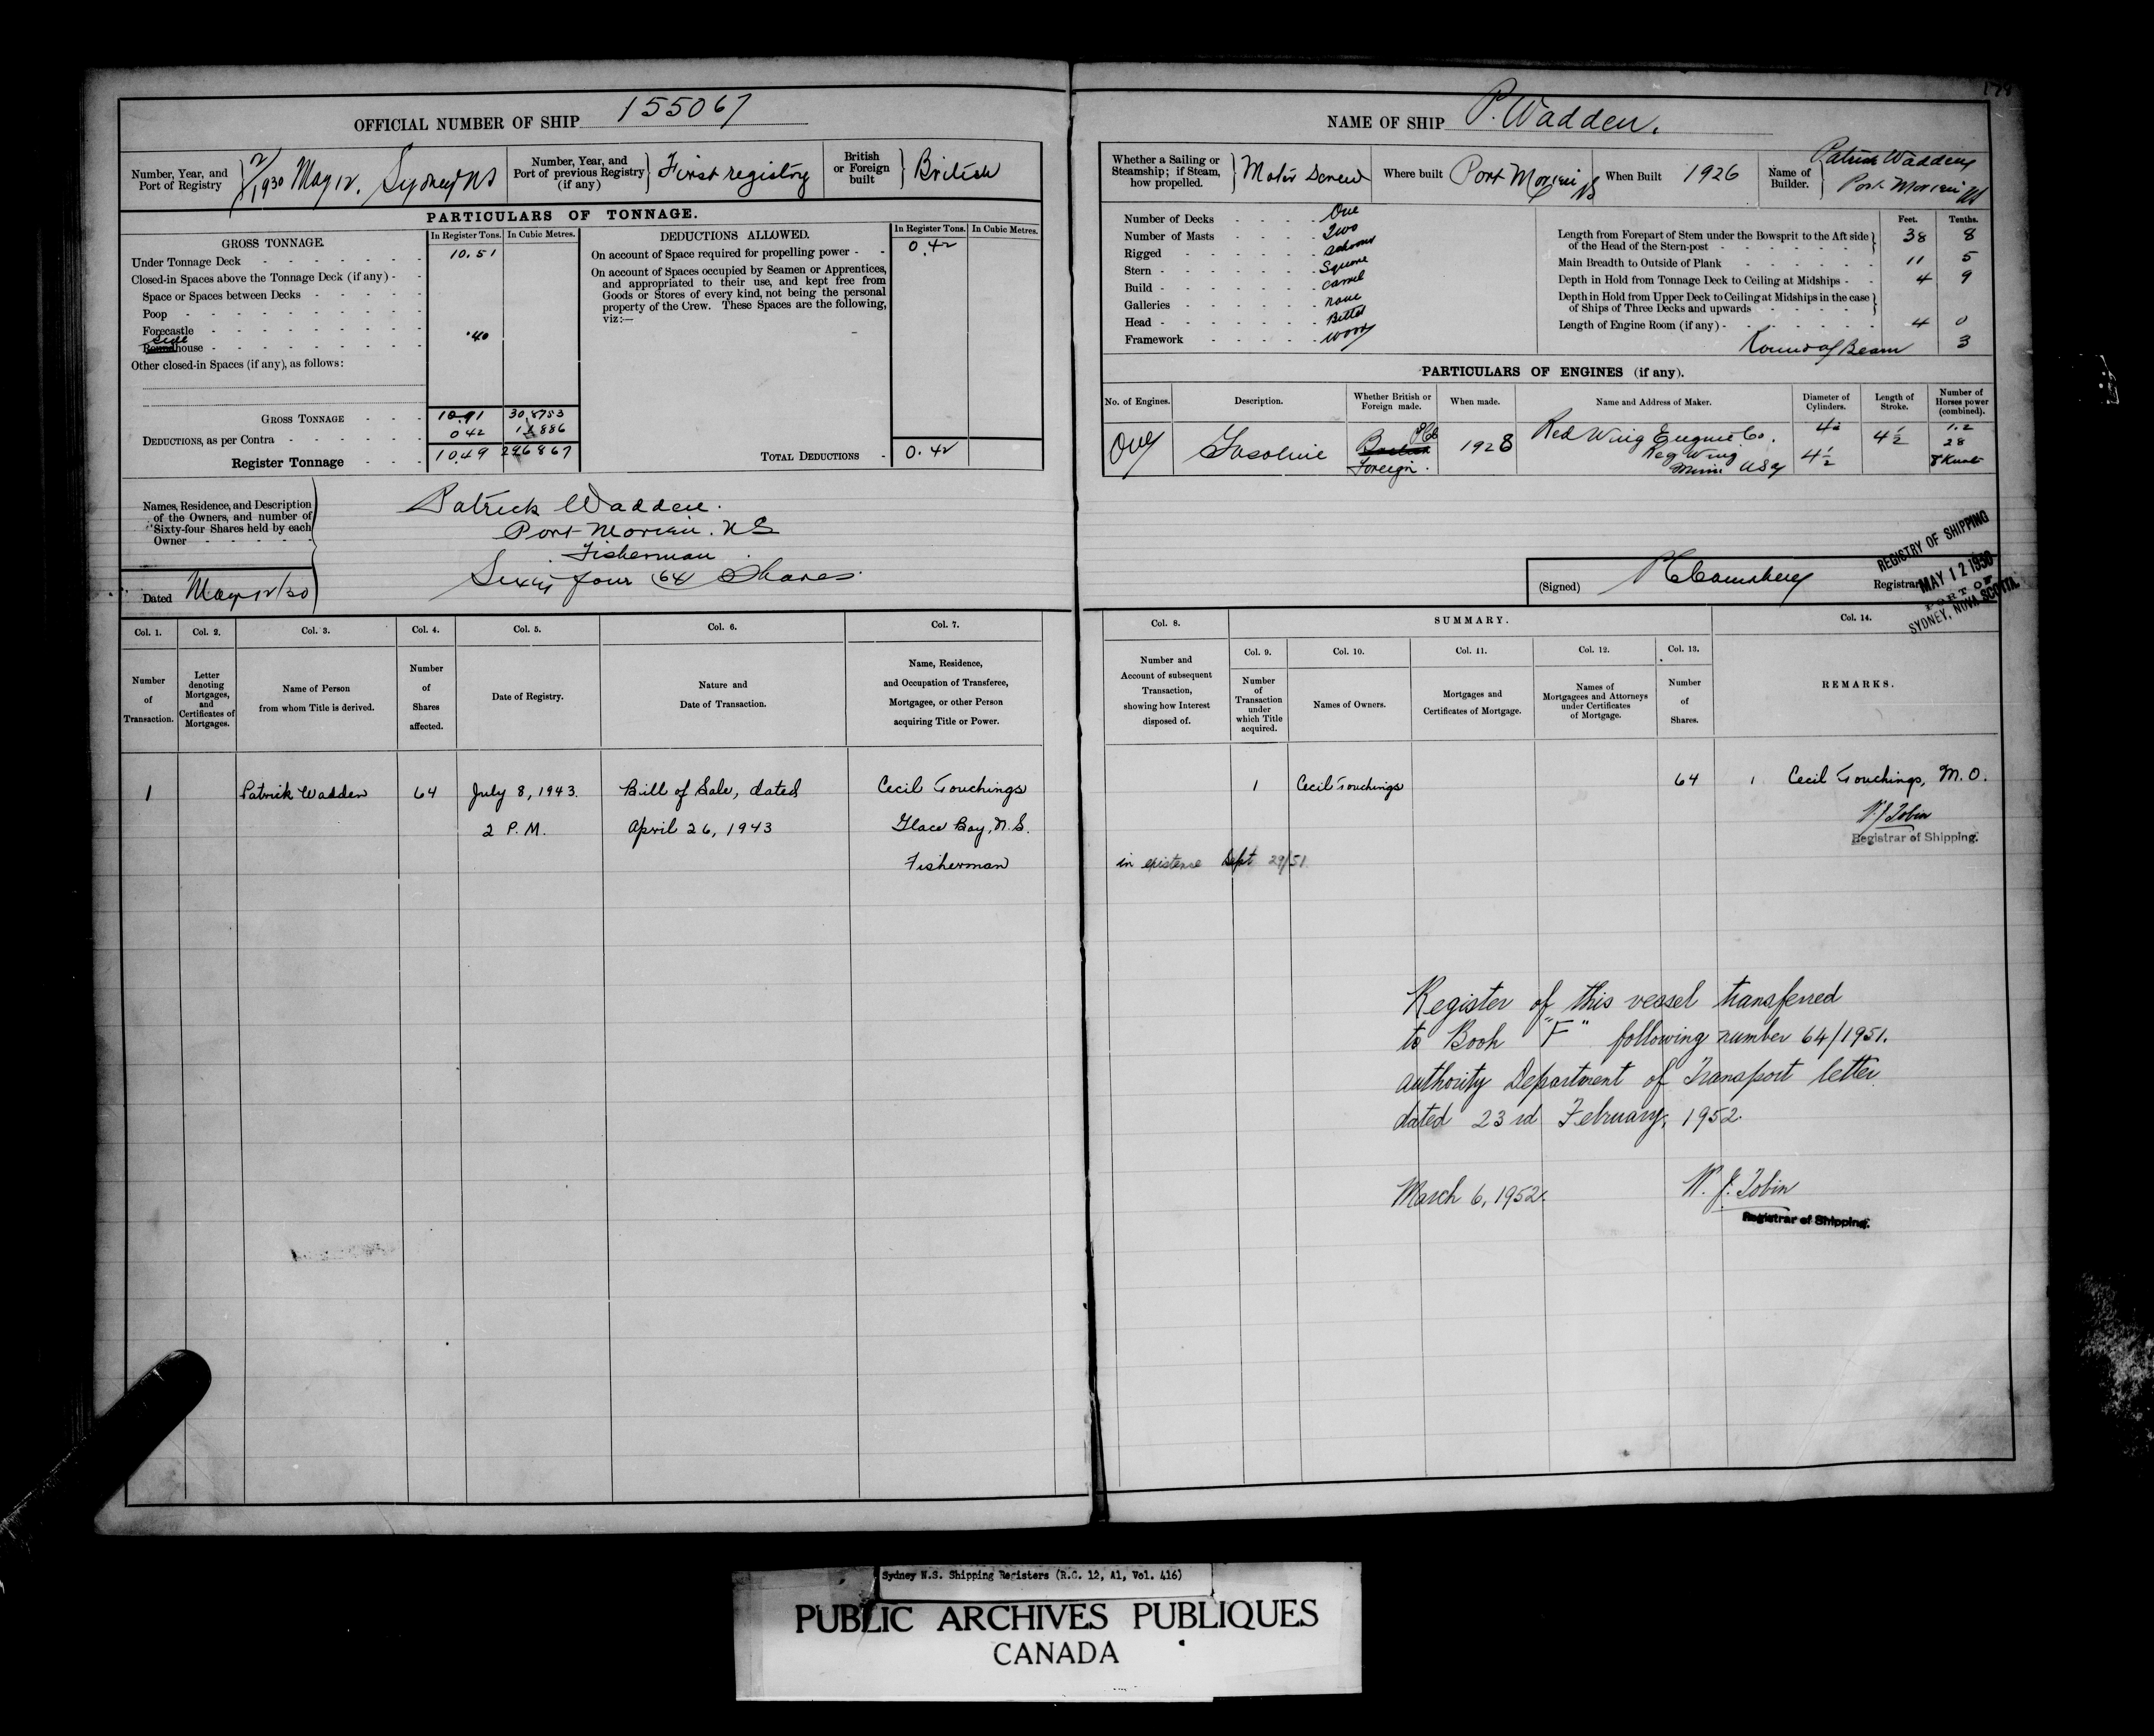 OFFICIAL NUMBER OF SHIP 155067
Number, Year, and Port of Registry 2/1930 May 12, Sydney NS
Number, Year, and Port of previous Registry (if any) First registry
British or Foreign built British
PARTICULARS OF TONNAGE.
GROSS TONNAGE. In Register Tons. In Cubic Metres.
Under Tonnage Deck 10.51
Closed-in Spaces above the Tonnage Deck (if any)
Space or Spaces between Decks
Poop
Forecastle
side
Roundhouse .40
Other closed-in Spaces (if any), as follows:
GROSS TONNAGE 10.91 30.8753
DEDUCTIONS, as per Contra 0 42 1 1886
Register Tonnage 10.49 29.6867
DEDUCTIONS ALLOWED. In Register Tons. In Cubic Metres.
On account of Space required for propelling power 0.42
On account of Spaces occupied by Seamen or Apprentices,
and appropriated to their use, and kept free from
Goods or Stores of every kind, not being the personal
property of the Crew. These Spaces are the following,
viz:—
TOTAL DEDUCTIONS 0.42
Names, Residence, and Description
of the Owners, and number of
Sixty-four Shares held by each
Owner
Patrick Wadden.
Port Morien. NS
Fisherman
Sixty four (64) Shares
Dated May 12/30
Col. 1. Col. 2. Col. 3. Col. 4. Col. 5. Col. 6. Col. 7.
Number of Transaction.
Letter denoting Mortgages, and Certificates of Mortgages.
Name of Person from whom Title is derived.
Number of Shares affected.
Date of Registry.
Nature and Date of Transaction.
Name, Residence, and Occupation of Transferee, Mortgagee, or other Person acquiring Title or Power.
1 Patrick Wadden 64 July 8, 1943. Bill of Sale, dated Cecil Touchings
2 P.M. April 26, 1943 Glace Bay, N.S.
Fisherman
NAME OF SHIP P. Wadden.
Whether a Sailing or Steamship; if Steam, how propelled. Motor Screw
Where built Port Morien NS
When Built 1926
Name of Builder. Patrick Wadden
Port Morien NS
Number of Decks One
Number of Masts Two
Rigged Schooner
Stern Square
Build Carvel
Galleries none
Head
Framework Wood
Feet. Tenths.
Length from Forepart of Stem under the Bowsprit to the Aft side of the Head of the Stern-post 38 8
Main Breadth to Outside of Plank 11 5
Depth in Hold from Tonnage Deck to Ceiling at Midships 4 9
Depth in Hold from Upper Deck to Ceiling at Midships in the case of Ships of Three Decks and upwards
Length of Engine Room (if any) 4 0
Round of Beam 3
PARTICULARS OF ENGINES (if any).
No. of Engines. Description. Whether British or Foreign made. When made. Name and Address of Maker. Diameter of Cylinders. Length of Stroke. Number of Horses power (combined).
One Gasoline British Foreign. 1928 Red Wing Engine Co.
Red Wing
Minn. USA
4½ 4½ 28
(Signed)
Registrar
REGISTRY OF SHIPPING
MAY 12 1930
PORT OF
SYDNEY, NOVA SCOTIA.
Col. 8. SUMMARY. Col. 14.
Col. 9. Col. 10. Col. 11. Col. 12. Col. 13.
Number and Account of subsequent Transaction, showing how Interest disposed of.
Number of Transaction under which Title acquired.
Names of Owners.
Mortgages and Certificates of Mortgage.
Names of Mortgagees and Attorneys under Certificates of Mortgage.
Number of Shares.
REMARKS.
1 Cecil Touchings 64 1 Cecil Touchings, M.O.
W J Tobin
Registrar of Shipping.
in existence Sept 29/51
Register of this vessel transferred
to Book "F" following number 64/1951.
authority Department of Transport letter
dated 23rd February, 1952
March 6, 1952. W. J. Tobin
Registrar of Shipping.
Sydney N.S. Shipping Registers (R.G. 12, A1, Vol. 416)
PUBLIC ARCHIVES PUBLIQUES
CANADA